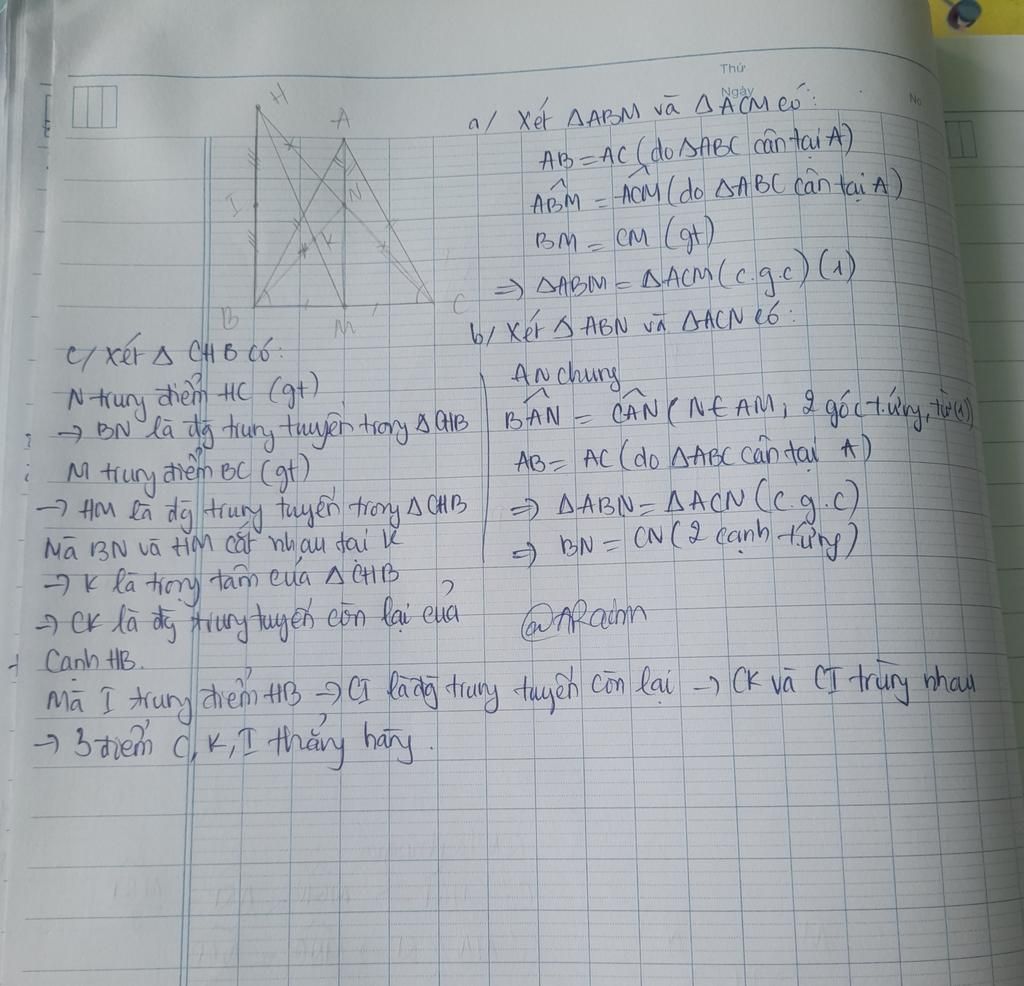 Thứ
Ngày
No
H
A
I
N
K
B
M
C
a/ Xét ΔABM và ΔACM có:
AB = AC (do ΔABC cân tại A)
ABM̂ = ACM̂ (do ΔABC cân tại A)
BM = CM (gt)
⇒ ΔABM = ΔACM (c.g.c) (1)
b/ Xét Δ ABN và ΔACN có:
AN chung
BAN̂ = CAN̂ (N ∈ AM, 2 góc tứng, từ (1))
AB = AC (do ΔABC cân tại A)
⇒ ΔABN = ΔACN (c.g.c)
⇒ BN = CN (2 cạnh tứng)
c/ Xét Δ CHB có:
N trung điểm HC (gt)
→ BN là đg trung tuyến trong ΔCHB
M trung điểm BC (gt)
→ HM là đg trung tuyến trong ΔCHB
Mà BN và HM cắt nhau tại K
→ K là trọng tâm của ΔCHB
⇒ CK là đg trung tuyến còn lại của
Cạnh HB.
Mà I trung điểm HB → CI là đg trung tuyến còn lại → CK và CI trùng nhau
→ 3 điểm C, K, I thẳng hàng.